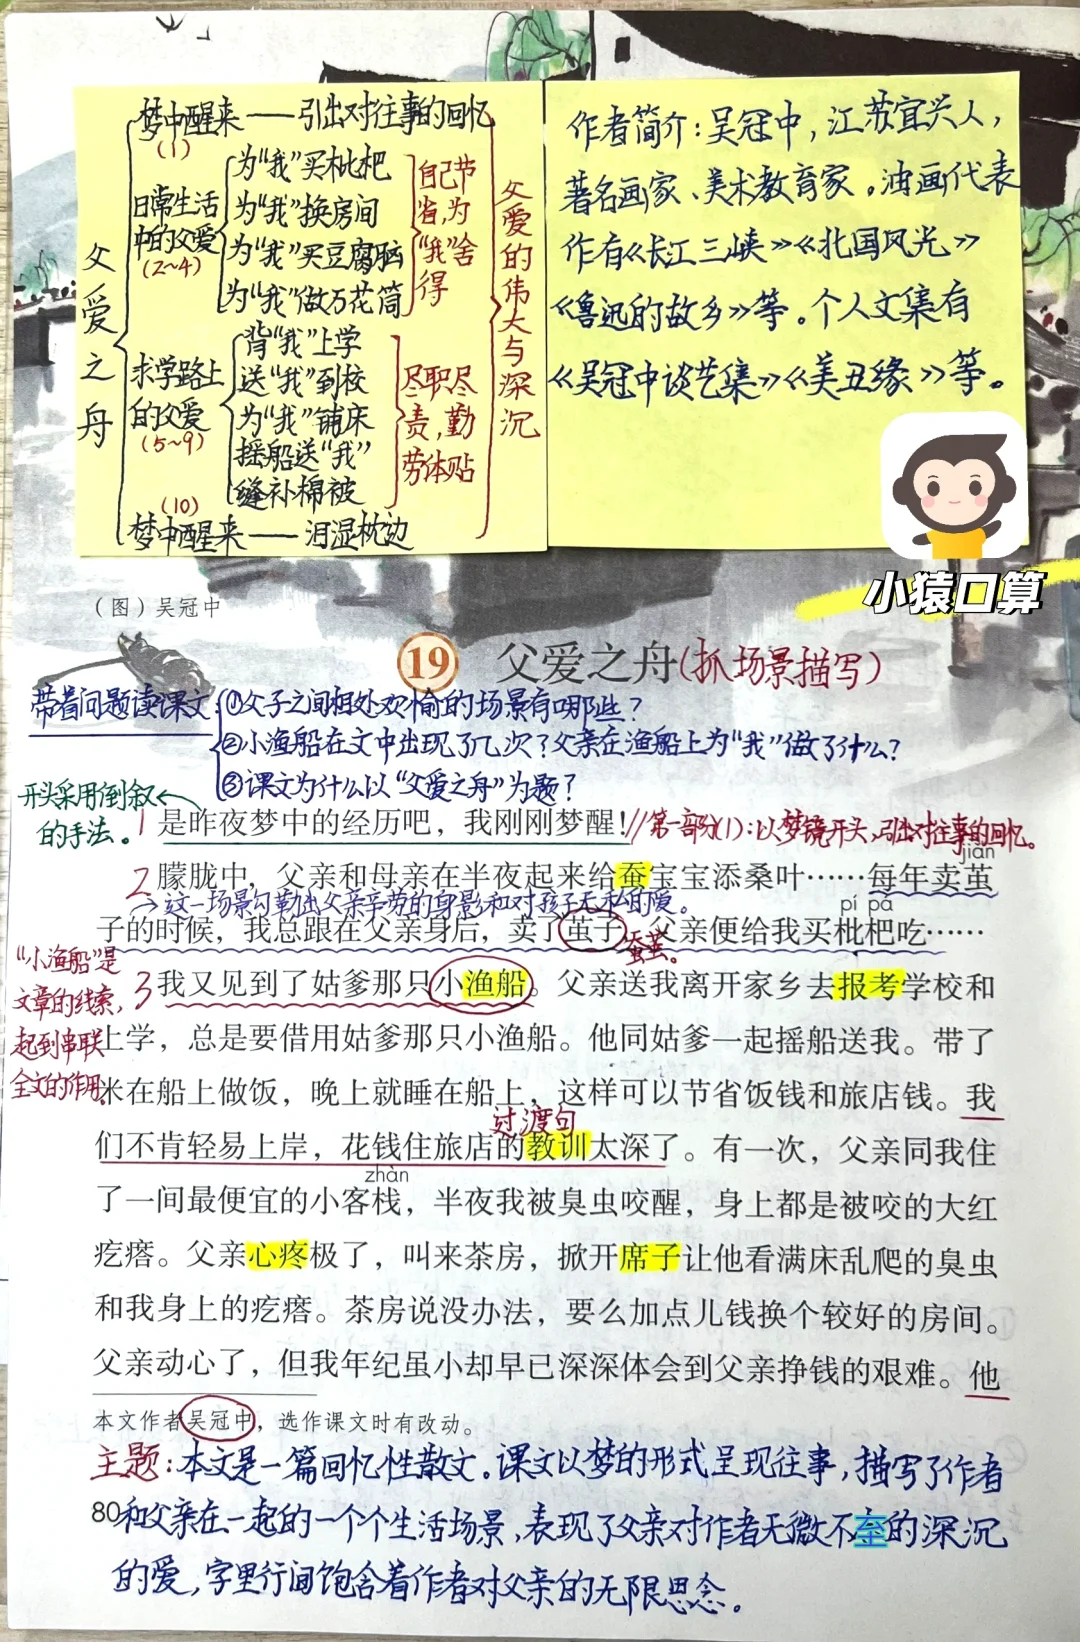 梦中醒来——引出对往事的回忆
(1)
父爱之舟
日常生活
中的父爱
(2~4)
为“我”买枇杷
为“我”换房间
为“我”买豆腐脑
为“我”做万花筒
自己节
省,为
“我”舍
得
求学路上
的父爱
(5~9)
背“我”上学
送“我”到校
为“我”铺床
摇船送“我”
缝补棉被
尽职尽
责,勤
劳体贴
父爱的伟大与深沉
(10)
梦中醒来——泪湿枕边
作者简介:吴冠中,江苏宜兴人,
著名画家、美术教育家。油画代表
作有《长江三峡》《北国风光》
《鲁迅的故乡》等。个人文集有
《吴冠中谈艺集》《美丑缘》等。
小猿口算
(图)吴冠中
19 父爱之舟(抓场景描写)
带着问题读课文:
①父子之间相处欢愉的场景有哪些?
②小渔船在文中出现了几次?父亲在渔船上为“我”做了什么?
③课文为什么以“父爱之舟”为题?
开头采用倒叙
的手法。
1 是昨夜梦中的经历吧,我刚刚梦醒!//第一部分(1):以梦境开头,引出对往事的回忆。
jiǎn
2 朦胧中,父亲和母亲在半夜起来给蚕宝宝添桑叶……每年卖茧
→这一场景勾勒出父亲辛劳的身影和对孩子无私的爱。
pí pá
子的时候,我总跟在父亲身后,卖了茧子,父亲便给我买枇杷吃……
蚕茧。
“小渔船”是
文章的线索,
起到串联
全文的作用。
3 我又见到了姑爹那只小渔船。父亲送我离开家乡去报考学校和
上学,总是要借用姑爹那只小渔船。他同姑爹一起摇船送我。带了
米在船上做饭,晚上就睡在船上,这样可以节省饭钱和旅店钱。我
过渡句
们不肯轻易上岸,花钱住旅店的教训太深了。有一次,父亲同我住
zhàn
了一间最便宜的小客栈,半夜我被臭虫咬醒,身上都是被咬的大红
疙瘩。父亲心疼极了,叫来茶房,掀开席子让他看满床乱爬的臭虫
和我身上的疙瘩。茶房说没办法,要么加点儿钱换个较好的房间。
父亲动心了,但我年纪虽小却早已深深体会到父亲挣钱的艰难。他
本文作者吴冠中,选作课文时有改动。
主题:本文是一篇回忆性散文。课文以梦的形式呈现往事,描写了作者
80
和父亲在一起的一个个生活场景,表现了父亲对作者无微不至的深沉
的爱,字里行间饱含着作者对父亲的无限思念。